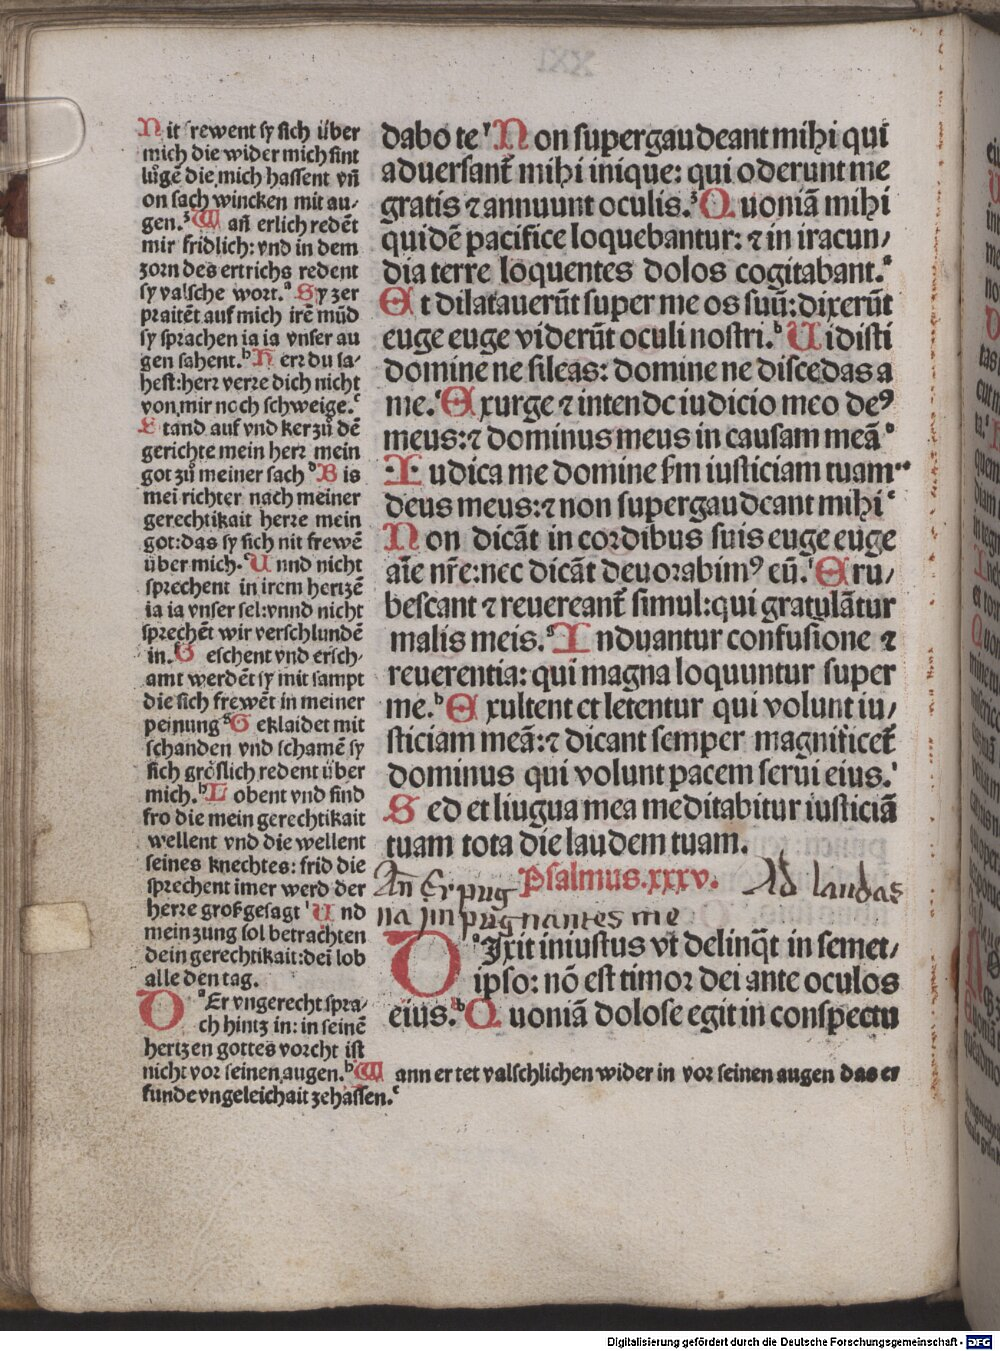 Nit frewent sy sich über
mich die wider mich sint
lugē die mich hassent vñ
on sach wincken mit au-
gen.ᶻ Wañ erlich redēt
mir fridlich: vnd in dem
zorn des ertrichs redent
sy valsche wort.ᵃ Sy zer
praitēt auf mich irē mūd
sy sprachen ia ia vnser au
gen sahent.ᵇ Herr du sa-
hest: herr verre dich nicht
von mir noch schweige.ᶜ
Stand auf vnd ker zů dē
gerichte mein herr mein
got zů meiner sach ᵈ Bis
mei richter nach meiner
gerechtikait herre mein
got: das sy sich nit frewē
über mich.ᵉ Vnnd nicht
sprechent in irem hertzē
ia ia vnser sel: vnnd nicht
sprechēt wir verschlundē
in.ᶠ Geschent vnd ersch-
amt werdēt sy mit sampt
die sich frewēt in meiner
peinung ᵍ Geklaidet mit
schanden vnd schamē sy
sich gröslich redent über
mich.ʰ Lobent vnd sind
fro die mein gerechtikait
wellent vnd die wellent
seines knechtes: frid die
sprechent imer werd der
herre groß gesagt ⁱ Vnd
mein zung sol betrachten
dein gerechtikait: dei lob
alle den tag.
Dᵃ Er vngerecht spra-
ch hintz in: in seinē
hertzen gottes vorcht ist
nicht vor seinen augen.ᵇ Wann er tet valschlichen wider in vor seinen augen das er
funde vngeleichait ze hassen.ᶜ
dabo te ʸ Non supergaudeant mihi qui
aduersant̃ mihi inique: qui oderunt me
gratis ⁊ annuunt oculis.ᶻ Quoniā mihi
quidē pacifice loquebantur: ⁊ in iracun/
dia terre loquentes dolos cogitabant.ᵃ
Et dilatauerūt super me os suū: dixerūt
euge euge viderūt oculi nostri.ᵇ Uidisti
domine ne sileas: domine ne discedas a
me.ᶜ Exurge ⁊ intende iudicio meo deꝰ
meus: ⁊ dominus meus in causam meā ᵈ
Iudica me domine ẜm iusticiam tuam
deus meus: ⁊ non supergaudeant mihi ᵉ
Non dicāt in cordibus suis euge euge
aīe nr̄e: nec dicāt deuorabimꝰ eū.ᶠ Eru/
bescant ⁊ reuereant̃ simul: qui gratulātur
malis meis.ᵍ Induantur confusione ⁊
reuerentia: qui magna loquuntur super
me.ʰ Exultent et letentur qui volunt iu/
sticiam meā: ⁊ dicant semper magnificet̃
dominus qui volunt pacem serui eius.ⁱ
Sed et liugua mea meditabitur iusticiā
tuam tota die laudem tuam.
Añ Expug Psalmus.xxxv. Ad laudas
na jmpugnantes me
Dᵃ Ixit iniustus vt delinq̃t in semet/
ipso: nō est timor dei ante oculos
eius.ᵇ Quoniā dolose egit in conspectu
Digitalisierung gefördert durch die Deutsche Forschungsgemeinschaft - DFG